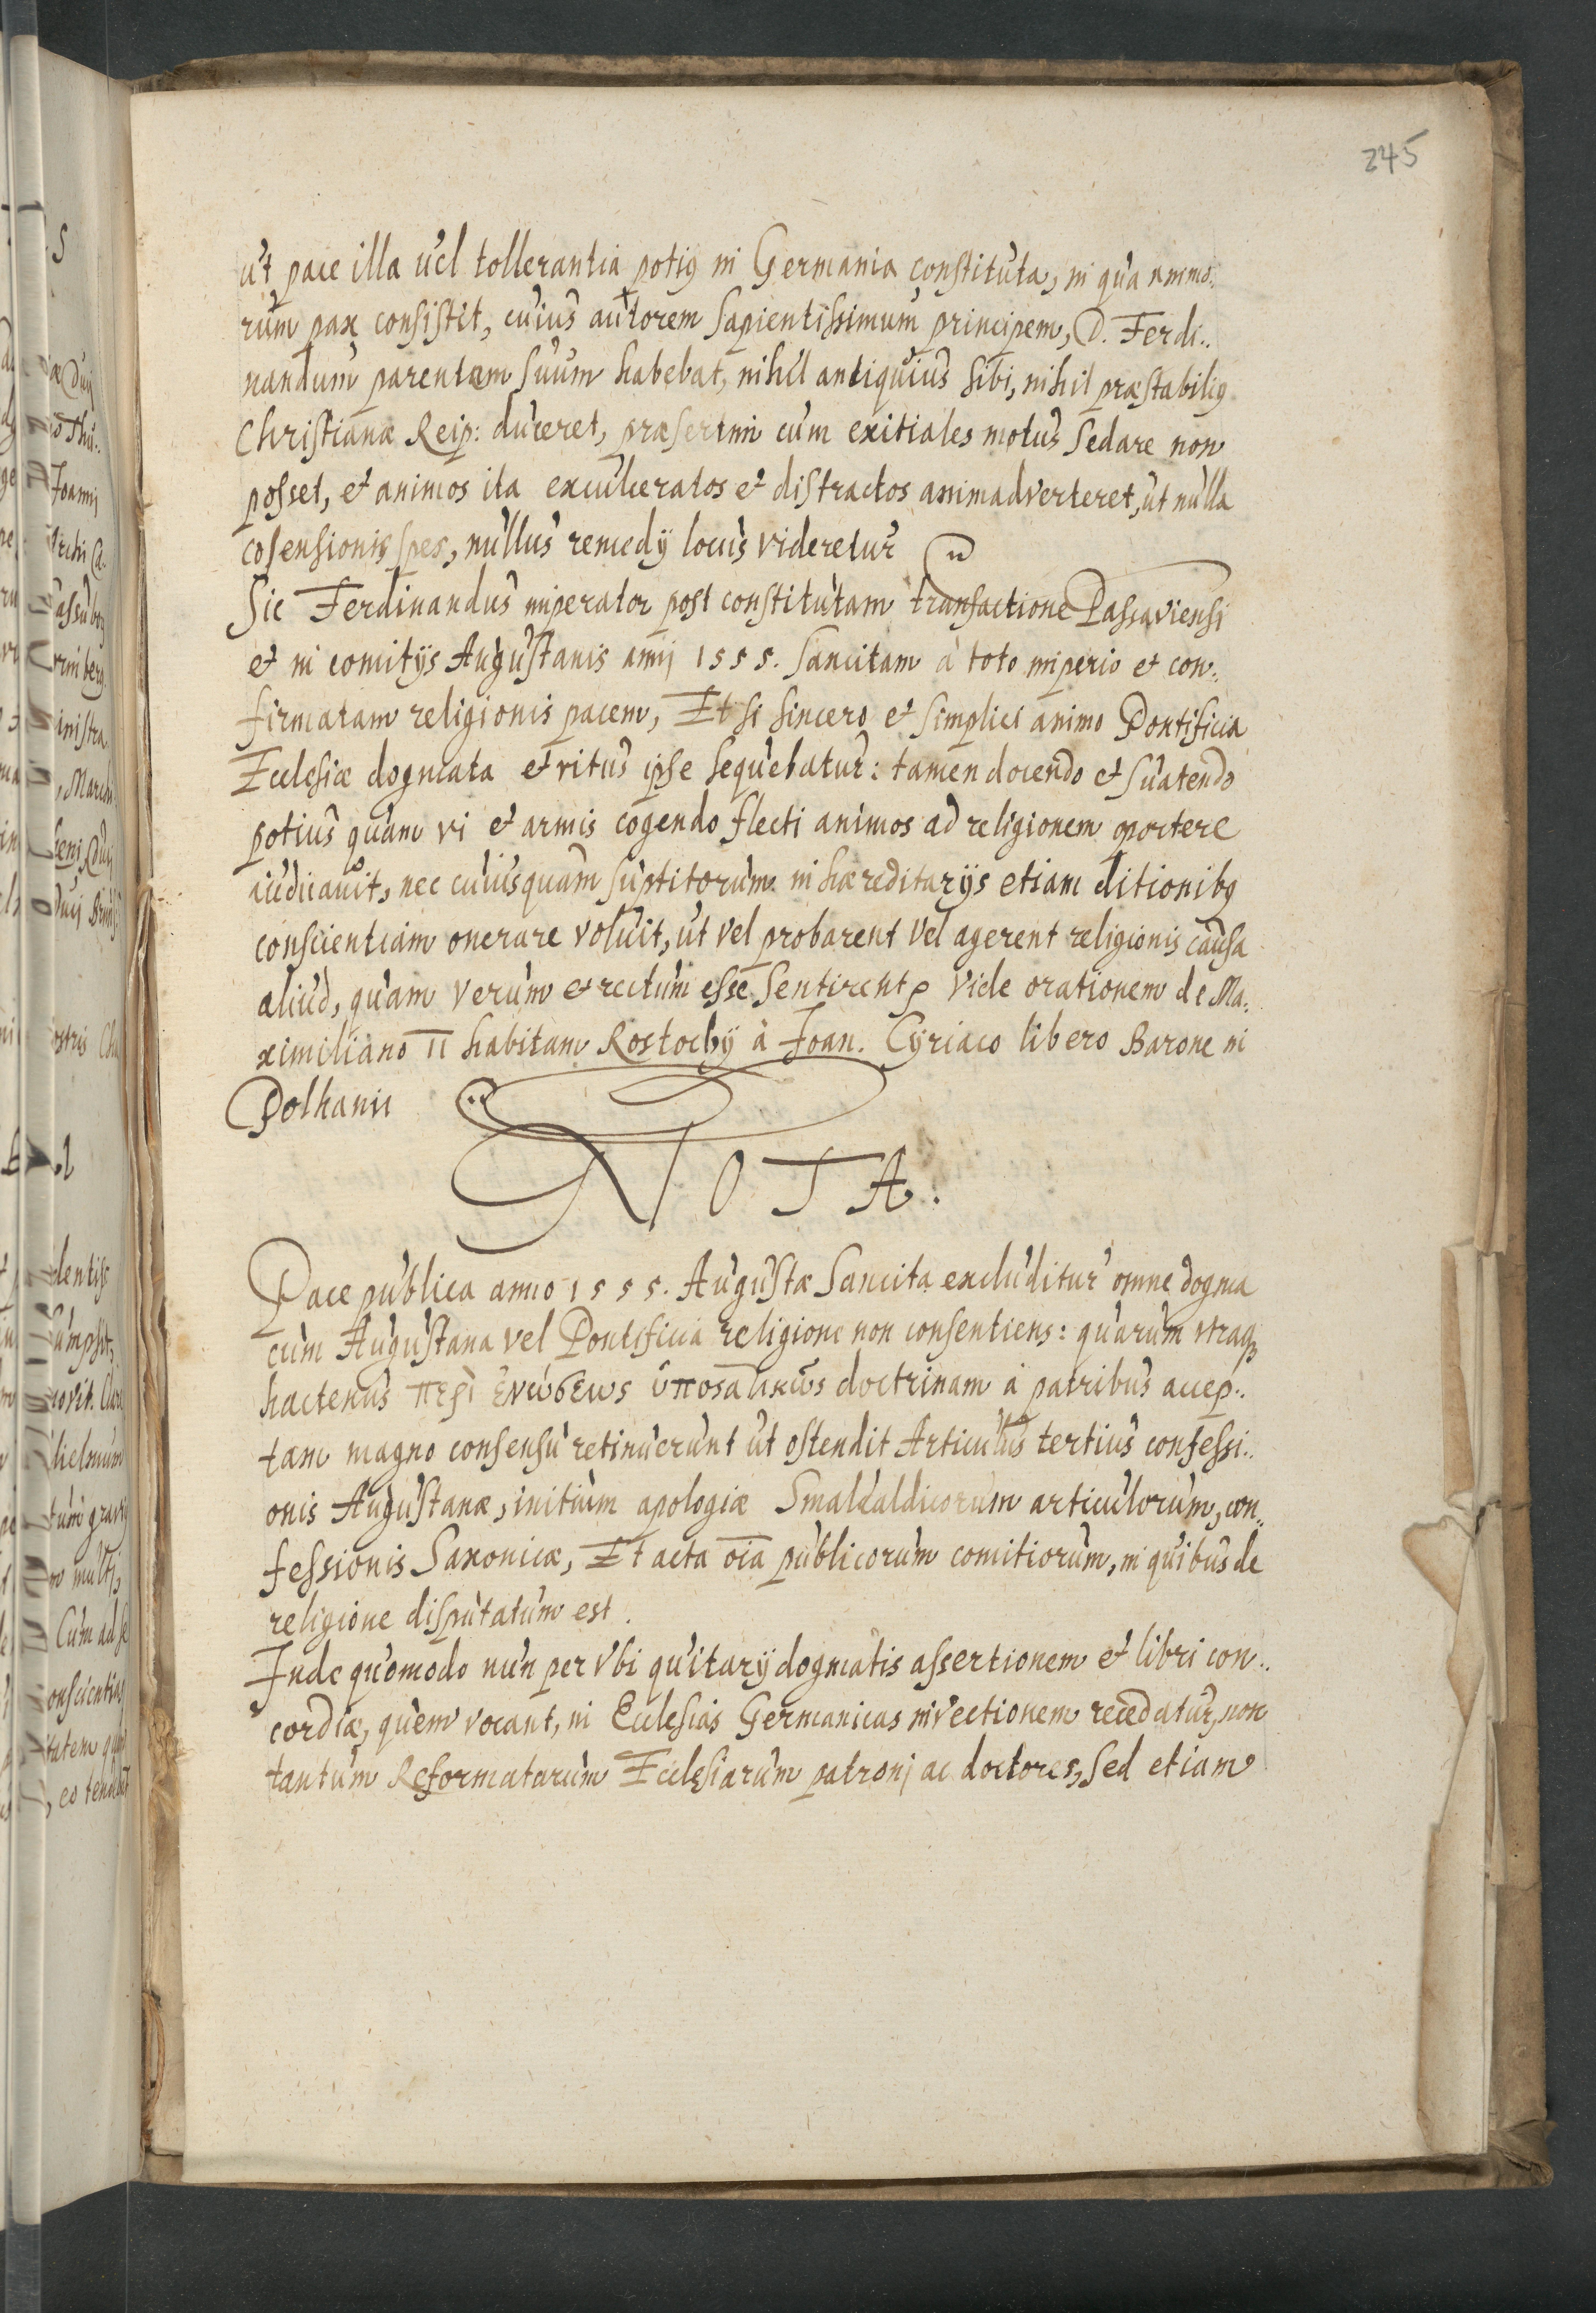 245
ut pace illa vel tollerantia potiꝰ in Germania constituta, in qua ammo..
rum pax consistit, cuius autorem sapientissimum principem, D. Ferdi..
nandum parentem suum habebat, nihil antiquius sibi, nihil præstabiliꝰ
Christianæ Reip: duceret, præsertim cum exitiales motus sedare non
posset, et animos ita exculceratos et distractos animadverteret, ut nulla
cosensionis spes, nullus remedij locus videretur
Sic Ferdinandus imperator post constitutam transactione Passaviensi
et in comitijs Augustanis anni 1555. sancitam à toto imperio et con..
firmatam religionis pacem, Et si sincero et simplici animo Pontificia
Ecclesiæ dogmata et ritus ipse sequebatur: tamen docendo et suatendo
potius quam vi et armis cogendo flecti animos ad religionem oportere
iudicauit, nec cuiusquam suptitorum in hæreditarijs etiam ditionibꝰ
conscientiam onerare voluit, ut vel probarent vel agerent religionis causa
aliud, quam verum et rectum esse sentirent, Vide orationem de Ma..
ximiliano II habitam Rostochij à Joan. Cyriaco libero Barone in
Polhanii
NOTA.
Pace publica anno 1555. Augustæ sancita excluditur omne dogma
cum Augustana vel Pontificia religione non consentiens: quarum vtraqꝫ
hactenus περὶ ἑνώσεως ὑποσαλικῶς doctrinam à patribus accep..
tam magno consensu retinuerunt ut ostendit Articulus tertius confessi..
onis Augustanæ, initium apologiæ Smalcaldicorum articulorum, con..
fessionis Saxonicæ, Et acta oīa publicorum comitiorum, in quibus de
religione disputatum est.
Inde quomodo nun per Vbi quitarij dogmatis assertionem et libri con..
cordiæ, quem vocant, in Ecclesias Germanicas invectionem recedatur, non
tantum Reformatarum Ecclesiarum patroni ac doctores, sed etiam